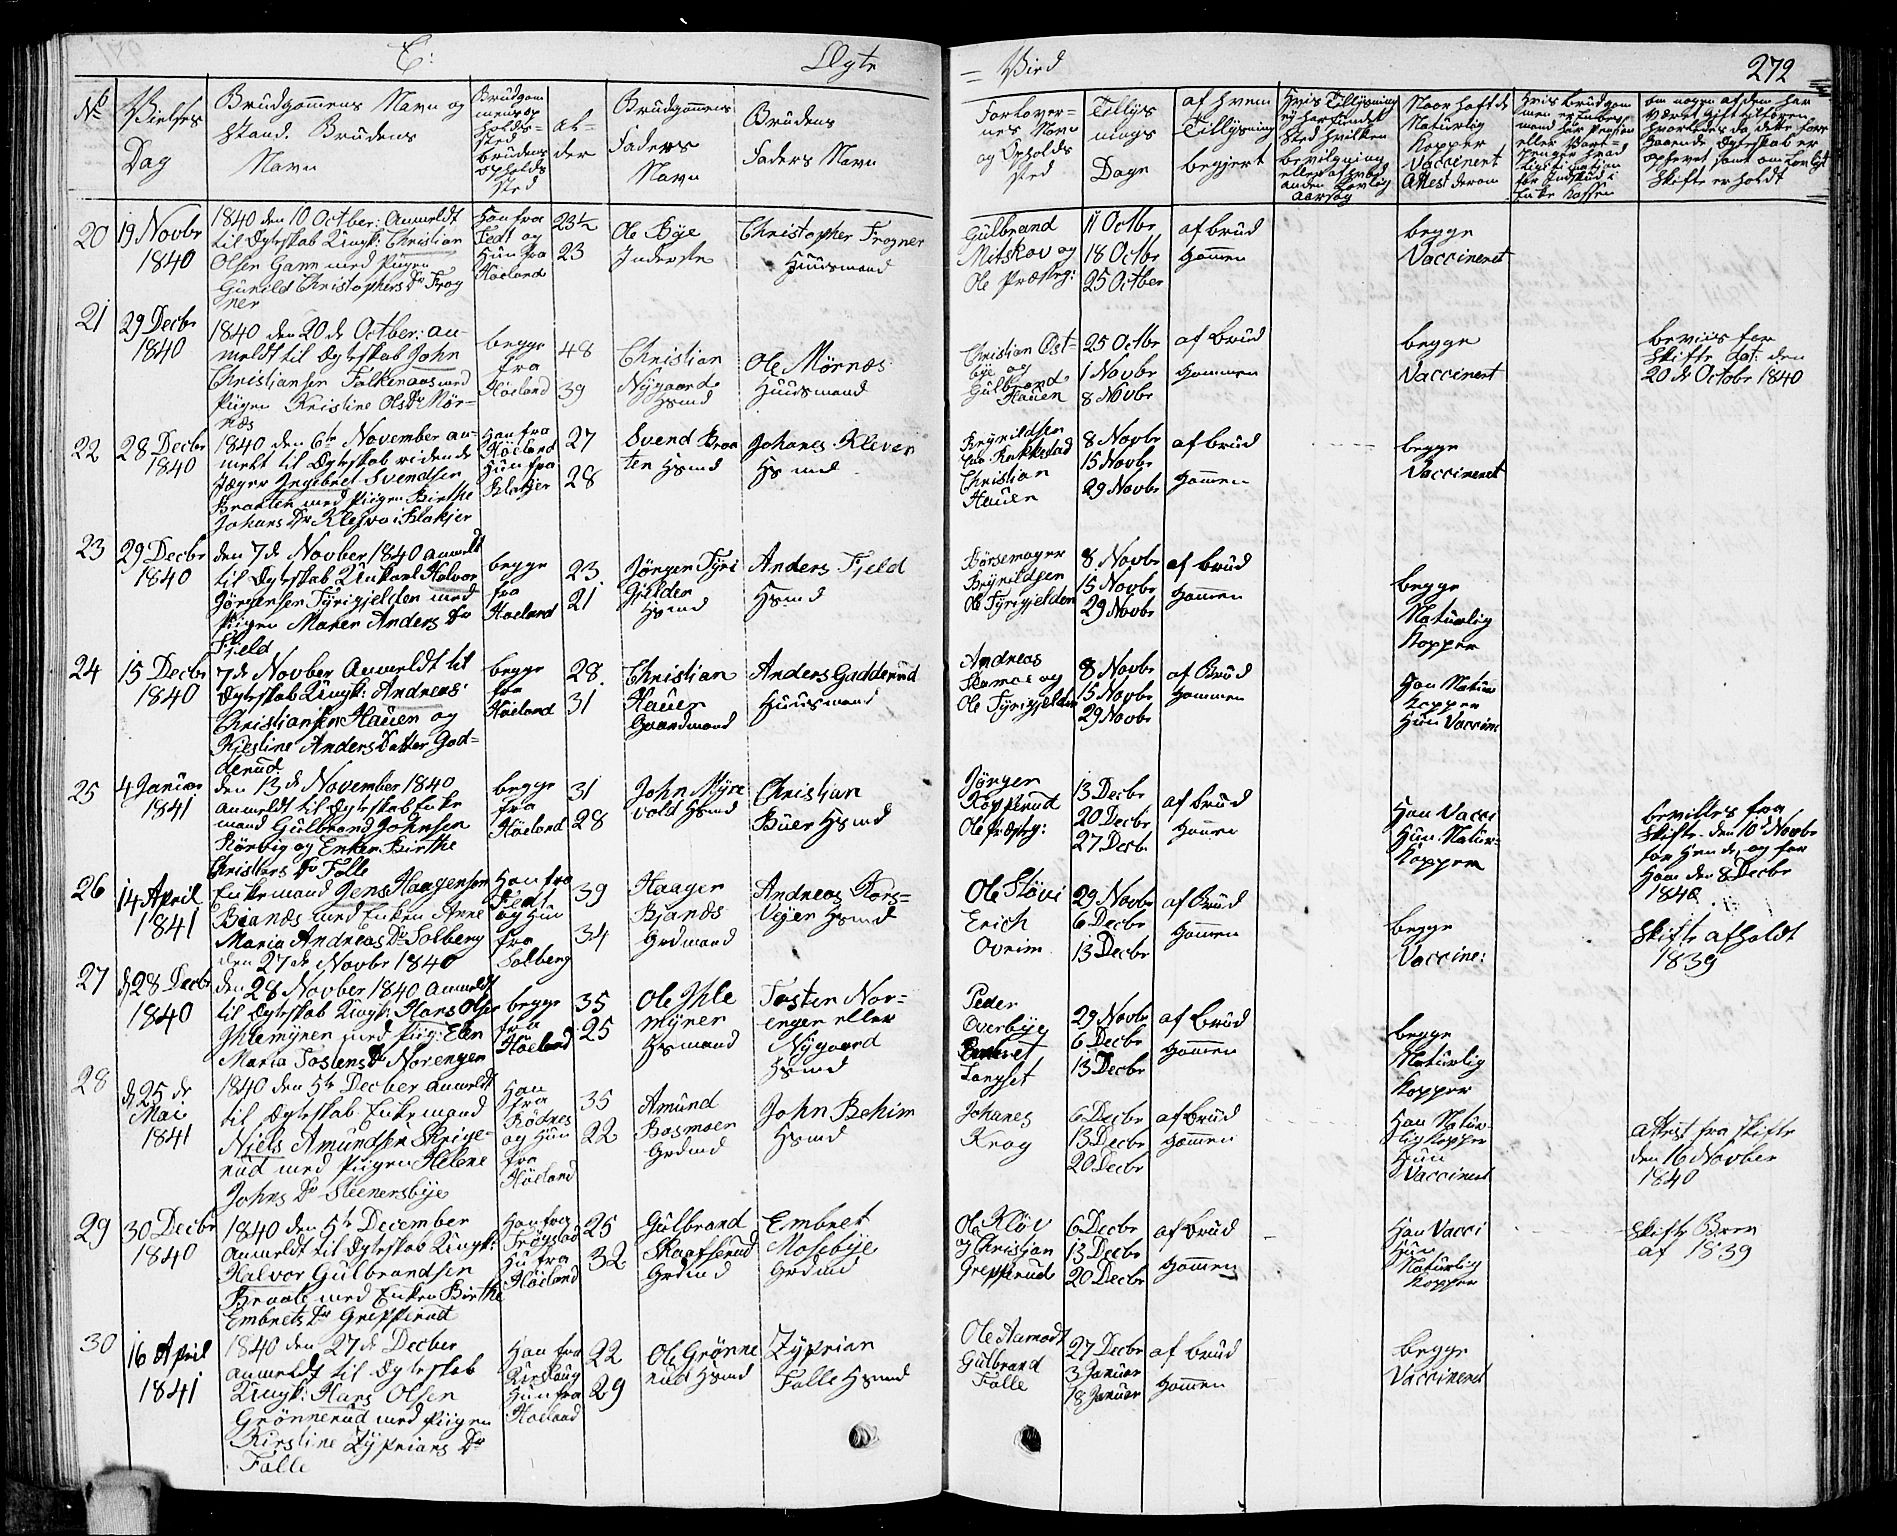 C:
Ægte
= Vied
272
No
Vielses
Dag
Brudgommens Navn og
Stand. Brudens
Navn
Brudgom
mens op
holds-
sted
Brudens
opholds
sted
Al-
der
Brudgommens
Faders
Navn
Brudens
Faders Navn
Forlover-
nes Navn
og Opholds
sted
Tillys
nings
Dage
af hvem
Tillysning
begjert
Hvis Tillysning
ej har fundet
sted hvilken
bevilgning
eller
anden lovlig
Aarsag
Naar hafte
Naturlig
Kopper
Vaccineret
Attest derom
Hvis Brudgom
men er Enke
mand har Pension
eller
om nogen af dem har
været gift tilforen
hvorledes da dette forre
gaaende Ægteskab er
ophevet samt om lovligt
Skifte er holdt
20
19 Novbr
1840
1840 den 10 October: Anmeldt
til Ægteskab Ungk: Christian
Olsen Gann med Pigen
Gunild Christophers Dr Frog
ner
Han fra
Fedt og
Hun fra
Høeland
23½
23
Ole Bye
Inderste
Christopher Frogner
Huusmand
Gulbrand
Mitskov og
Ole Præsteg:
11 Octbr
18 Octbr
25 Octber
af Brud
gommen
begge
Vaccineret
21
29 Decbr
1840
1840 den 20de Octber: an-
meldt til Ægteskab John
Christiansen Falkenaas med
Pigen Kristine Ols Dr Mør-
næs
begge
fra
Høeland
48
39
Christian
Nygaard
Hsmd
Ole Mørnæs
Huusmand
Christian Ost-
bye og
Gulbrand
Hauen
25 Octbr
1 Novbr
8 Novbr
af Brud
gommen
begge
Vaccineret
beviis for
Skifte dat: den
20de Octobr 1840
22
28 Decbr
1840
1840 den 6te November an-
meldt til Ægteskab ridende
Jæger Ingebret Svendsen
Braaten med Pigen Birthe
Johans Dr Kleiva i Blakjer
Han fra
Høeland
Hun fra
Blakjer
27
28
Svend Braa
ten Hsmd
Johanes Kleven
Hsmd
Brynildsen
Christian
Hauen
8 Novbr
15 Novbr
29 Novbr
af Brud
gommen
begge
Vaccineret
23
29 Decbr
1840
den 7de Novber 1840 anmeldt
til Ægteskab Unkarl Halvor
Jørgensen Tyrigjelden med
Pigen Maren Anders Dr
Fjeld
begge
fra
Høeland
23
21
Jørgen Tyri
gjelden
Hsmd
Anders Fjeld
Hsmd
Børsemager
Brynildsen
Ole Tyrigjelden
8 Novbr
15 Novbr
29 Novbr
af Brud
gommen
begge
Naturlig
Kopper
24
15 Decbr
1840
7de Novber Anmeldt til
Ægteskab Ungk: Andreas
Christiansen Hauen og
Kjestine Anders Datter Gad-
derud
begge
fra
Høeland
28
31
Christian
Hauen
Gaardmand
Anders Gadderud
Huusmand
Andreas
Kamas og
Ole Tyrigjelden
8 Novbr
15 Novbr
29 Novbr
af Brud
gommen
Han Natur
Kopper
Hun Vaccine
25
4 Januar
1841
den 13de November 1840
anmeldt til Ægteskab Enke
mand Gulbrand Johnsen
Rørbig og Enken Birthe
Christians Dr Falle
begge
fra
Høeland
31
28
John Myre
vold Hsmd
Christian
Buer Hsmd
Jørgen
Kopperud
Ole Præsteg:
13 Decbr
20 Decbr
27 Decbr
af Brud
gommen
Han Vacci
Hun Natur-
Kopper
bevilles fra
Skifte den 10de Novbr
for Hende, og for
Ham den 8 Decbr
1840
26
14 April
1841
Enkemand Jens Haagensen
Bjanæs med Enken Anne
Maria Andreas Dr Solberg
den 27de Novbr 1840
Han fra
Fedt
og Hun
fra
Solberg
39
34
Haagen
Bjanæs
Grdmand
Andreas Kors-
Vejen Hsmd
Ole Støvi
Erich
Ovrim
29 Novbr
6 Decbr
13 Decbr
af Brud
gommen
begge
Vaccine:
Skifte afholdt
1839
27
d 28 Decbr
1840
den 28 Novber 1840 Anmeldt
til Ægteskab Ungk: Hans Olsen
Ihlemyren med Pig: Elen
Maria Tostens Dr Norengen
begge
fra
Høeland
35
25
Ole Ihle
myren
Hsmand
Tosten Nor-
engen eller
Nygaard
Hsmd
Peder
Overbye
Embret
Langset
29 Novbr
6 Decbr
13 Decbr
af Brud
gommen
begge
Naturlig
Kopper
28
d 25de
Mai
1841
1840 den 5te Decber anmeldt
til Ægteskab Enkemand
Niels Amundsen Skrige-
rud med Pigen Helene
Johns Dr Steenersbye
Han
fra
Rødnes
og Hun
fra
Høeland
35
22
Amund
Basmoen
Grdmd
John Behim
Hsmd
Johanes
Krog
6 Decbr
13 Decbr
20 Decbr
af Brud
gommen
Han Natur-
lig Kopper
Hun
Vaccineret
Attest fra Skifte
den 16 Novber
1840
29
30 Decbr
1840
1840 den 5te December
anmeldt til Ægteskab Ungk:
Halvor Gulbrandsen
Braate med Enken Birthe
Embrets Dr Grepperud
Han fra
Trøgstad
Hu fra
Høeland
25
32
Gulbrand
Skaffserud
Grdmd
Embret
Mosebye
Grdmd
Ole Kløv
og Christian
Grepperud
6 Decbr
13 Decbr
20 Decbr
af Brud
gommen
Han Vacci
Hun
Naturlig
Kopper
Skifte Brev
af 1839
30
16 April
1841
1840 den 27de Decber
anmeldt til Ægteskab
Ungk: Hans Olsen
Grønnerud med Pigen
Kirstine Zyprians Dr
Falle
Han fra
Urskaug
Hun fra
Høeland
22
29
Ole Grønne
rud Hsmd
Zyprian
Falle Hsmd
Ole Aamodt
Gulbrand
Falle
27 Decbr
3 Januar
18 Januar
af Brud
gommen
begge
Vaccineret